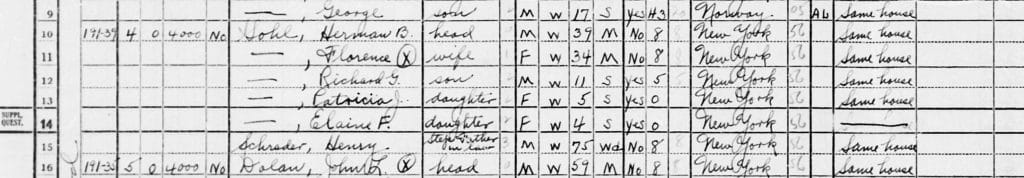 9 — , George son M W 17 S yes H3 Norway. 05 Ab Same house
10 191-39 4 O 4000 No Hohl, Herman B. head M W 39 M No 8 New York 56 Same house
11 — , Florence (X) wife F W 34 M No 8 New York 56 Same house
12 — , Richard G. son M W 11 S yes 5 New York 56 Same house
13 — , Patricia J. daughter F W 5 S yes 0 New York 56 Same house
SUPPL. QUEST. 14 — , Elaine F. daughter F W 4 S yes 0 New York 56 —
15 Schrader, Henry. Step Father in law M W 75 Wd No 8 New York 56 Same house
16 191-35 5 O 4000 No Dolan, John L. (X) head M W 59 M No 8 New York 56 Same house